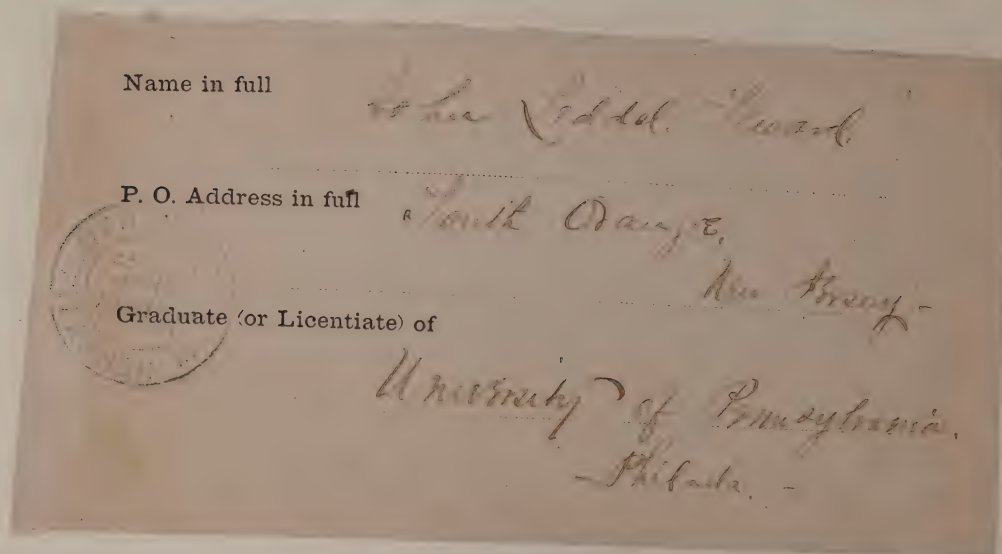 Name in full John Liddel
P. O. Address in full South Orange,
New Jersey -
Graduate (or Licentiate) of
University of Pennsylvania.
- Philada. -